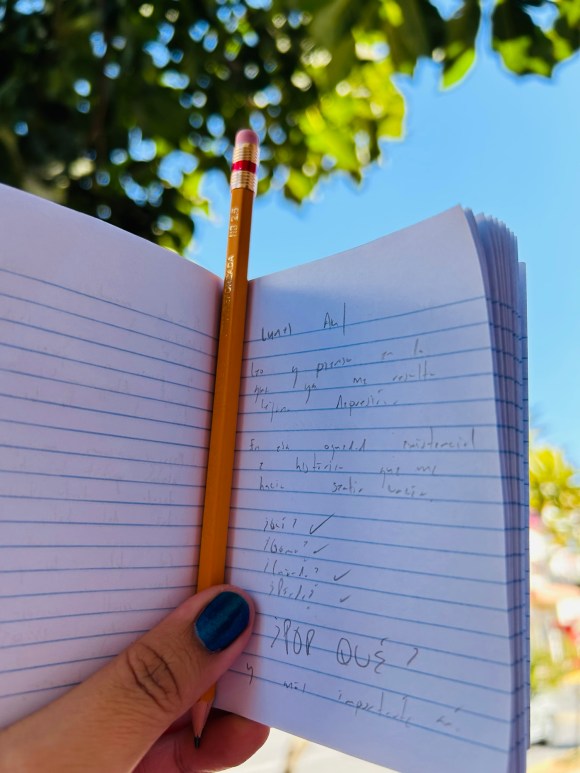 Lunes Azul
Leo y pienso en la
que ya me resulta
lejana depresión.
En esa oquedad existencial
e histérica que me
hacía sentir vacía.
¿Qué? ✓
¿Cómo? ✓
¿Cuándo? ✓
¿Dónde? ✓
¿POR QUÉ?
y más importante aún